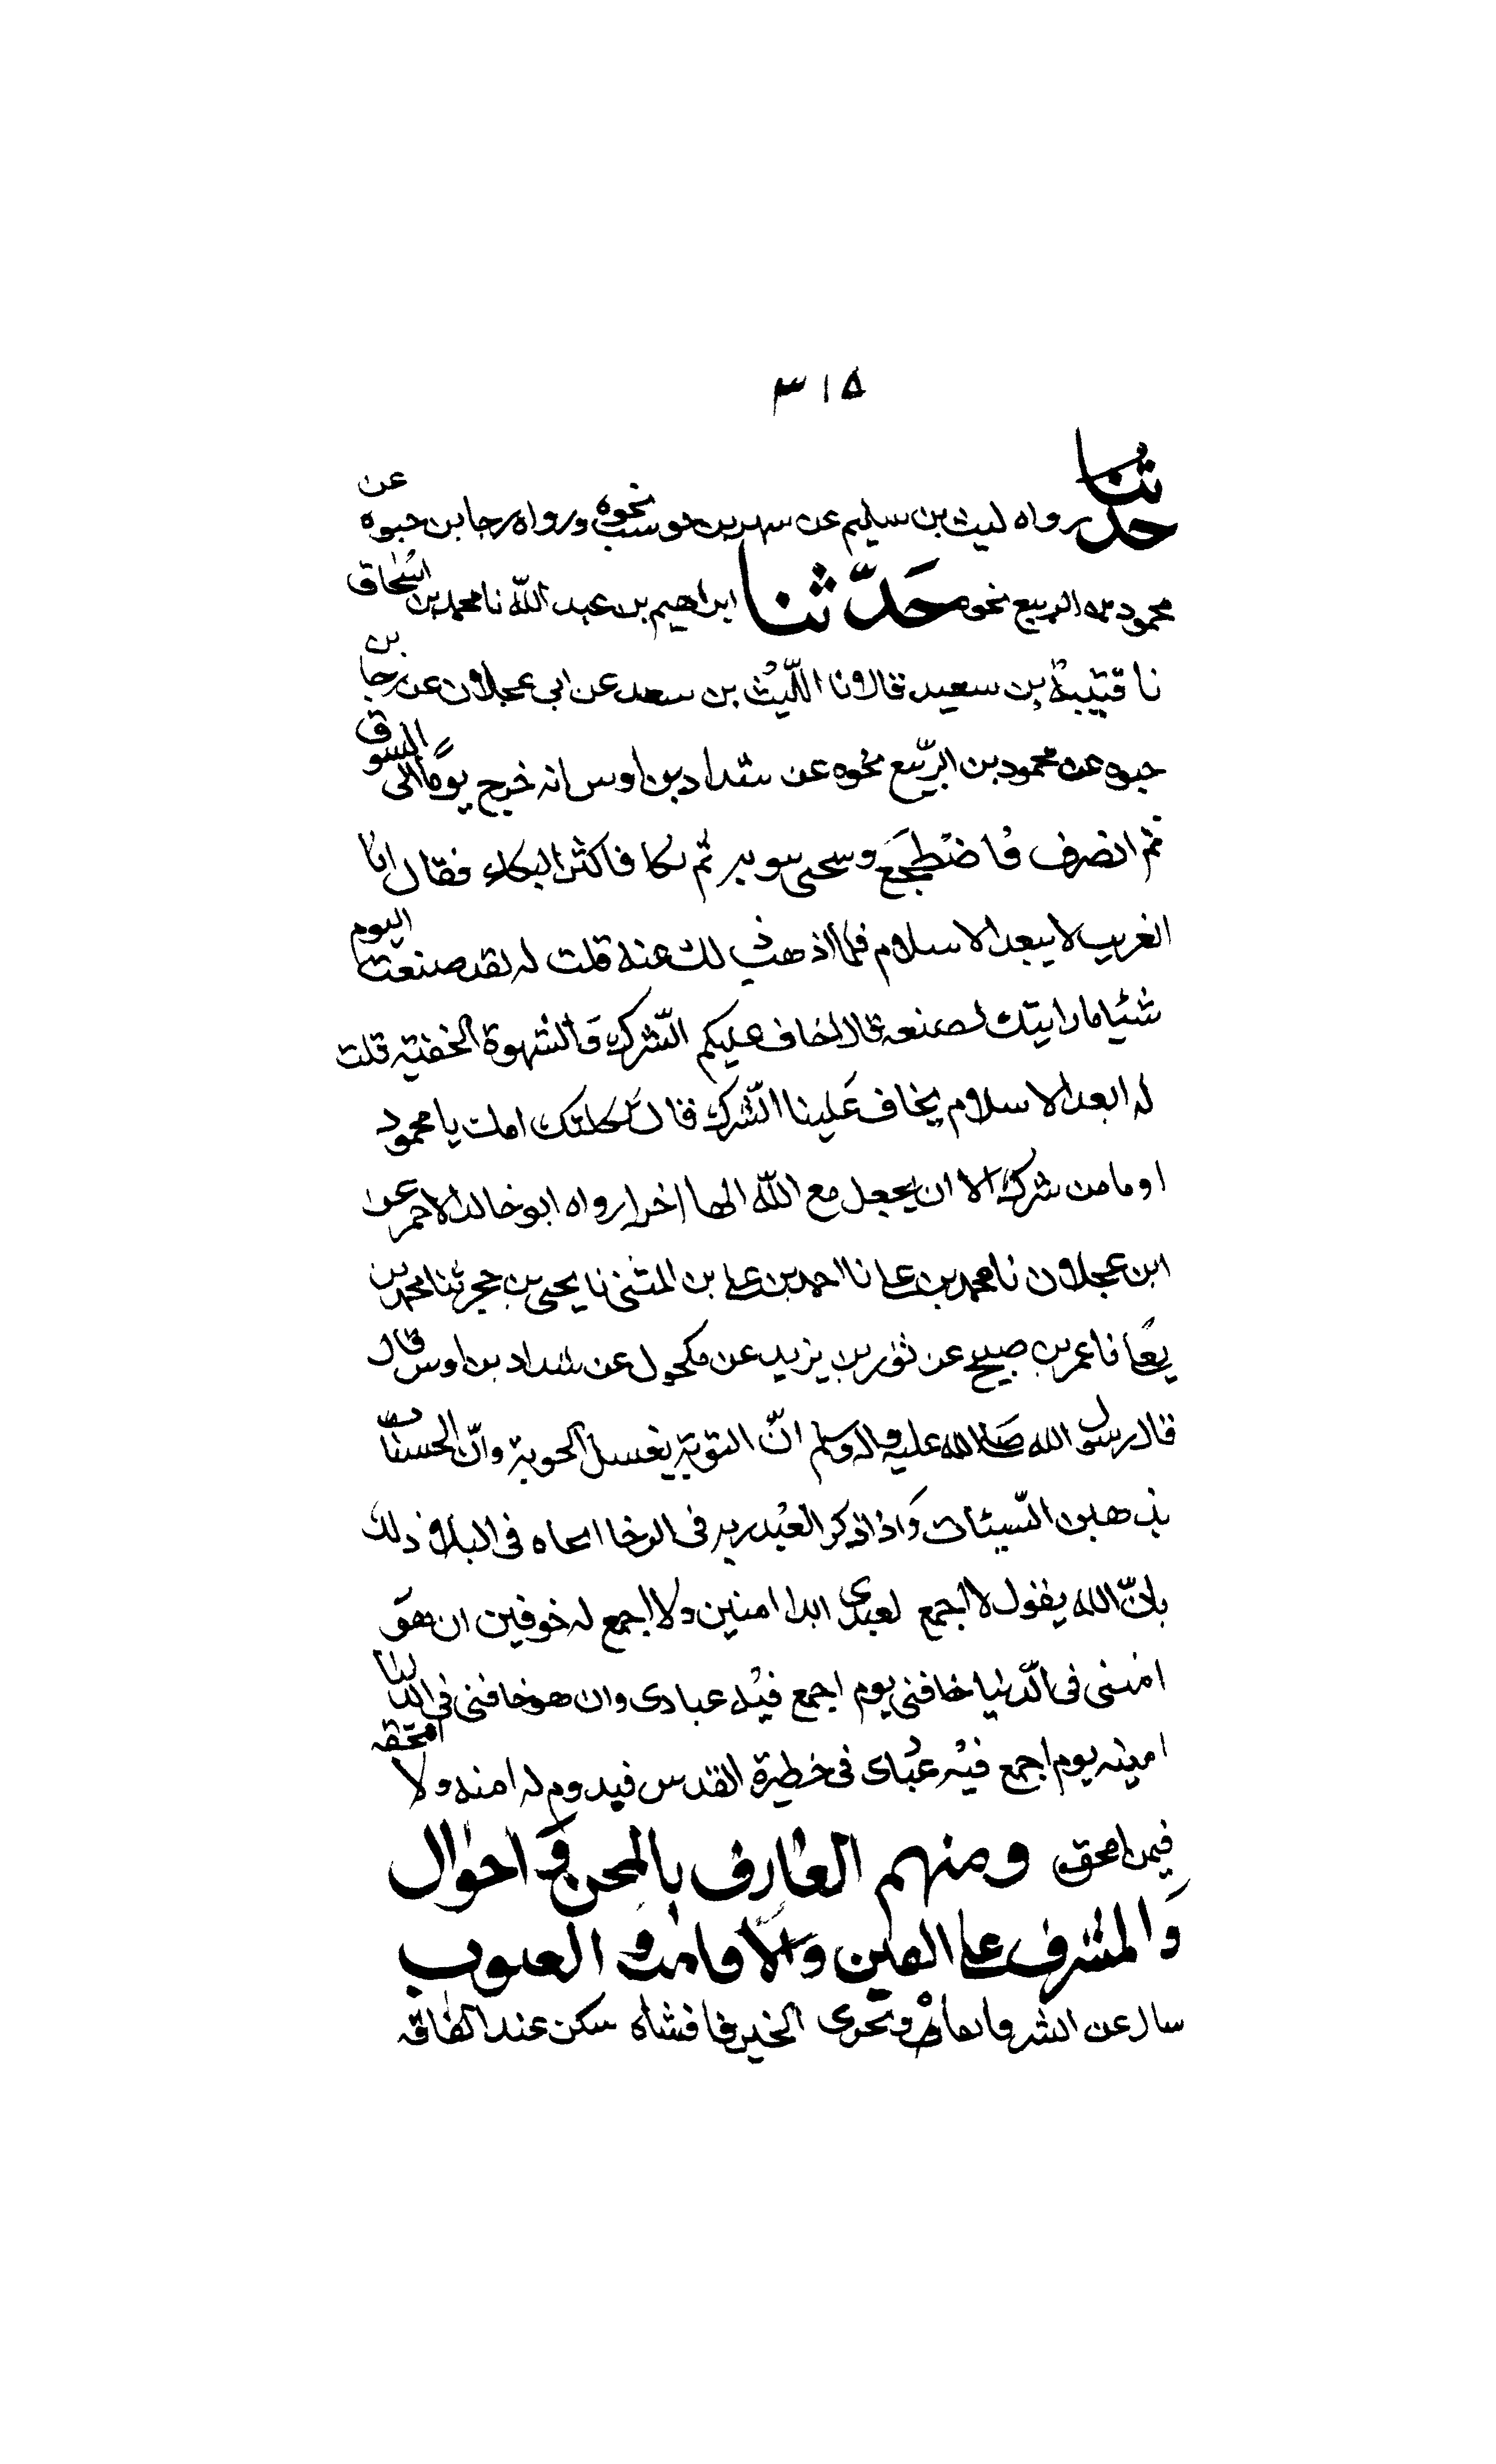 ٣١٥
حدثنا رواه ليث بن سليم عن سهر بن حوسب نحوه ورواه رجا بن حيوه عن
محمود بن الربيع نحوه حَدّثنا ابراهيم بن عبد اللّه نا محمد بن اسحاق
نا قتيبة بن سعيد قالا نا اللّيث بن سعد عن ابى عجلان عن رجا بن
حيوه عن محمود بن الرّبيع نحوه عن شداد بن اوس انه خرج يومًا الى السوق
ثم انصرف فاضطجع وسحى سوبه ثم بكا فاكثر البكاء فقال انا
الغريب لا يبعد الاسلام فلما ذهب ذلك عنه قلت له لقد صنعت اليوم
شئيا ما رايتك تصنعه قال اخاف عليكم الشّرك والشهوة الخفية قلت
له ابعد الاسلام يخاف عَلينا الشّرك قال ثكلتك امك يا محمود
او ما من شرك الا ان يجعل مع اللّه الها اخر رواه ابو خالد الاحمر عن
ابن عجلان نا محمد بن على نا احمد بن على بن المثنى نا يحيى بن حجر ثنا محمد بن
يعلى نا عمر بن صبيح عن ثور بن يزيد عن مكحول عن شداد بن اوس قال
قال رسول الله صلى الله عليه واله وسلم انّ التوبة يغسل الحوبة وانّ الحسنات
يذهبن السّيئات وَاذا ذكر العبد ربه فى الرخا انجاه فى البلاء ذلك
بانّ الله يقول لا اجمع لعبدى ابدا امنين ولا اجمع له خوفين ان هو
امننى فى الدّنيا خافنى يوم اجمع فيه عبادى وان هو خافنى فى الدنيا
امينه يوم اجمع فيه عبادى فى خطيرة القدس فيدوم له امنه ولا امحقه
فيمن امحق ومنهم العارف بالمحن وَ احوال
وَالمشرف على الفتن والافات و العيوب
سال عن الشر فاتقاه وتحرى الخير فافشاه سكن عند الفاقه